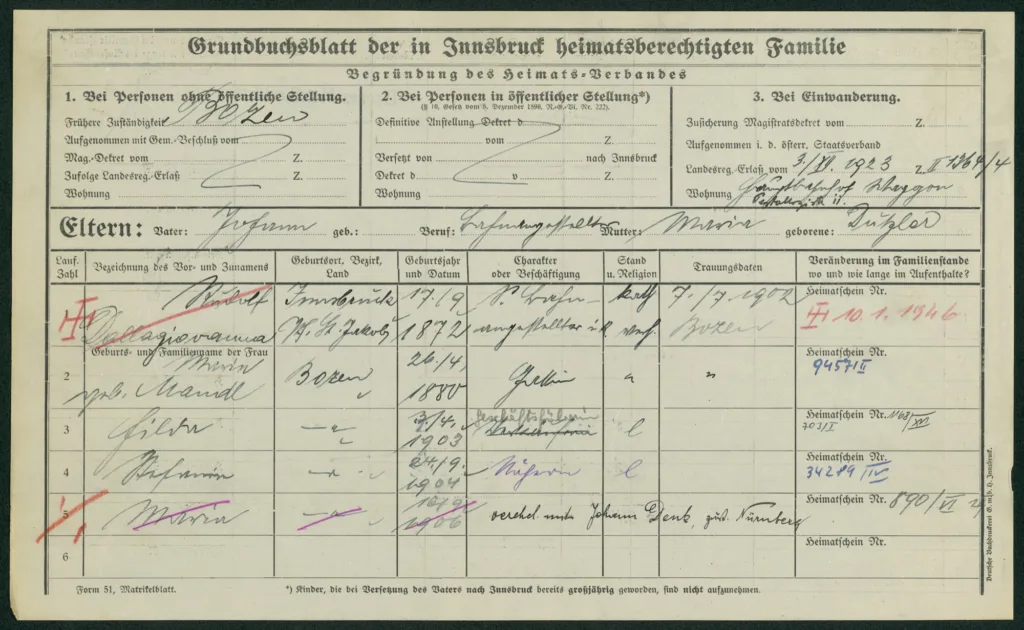 Grundbuchsblatt der in Innsbruck heimatsberechtigten Familie
Begründung des Heimats-Verbandes
1. Bei Personen ohne öffentliche Stellung.
Frühere Zuständigkeit Bozen
Aufgenommen mit Gem.-Beschluß vom Z.
Mag.-Dekret vom Z.
Zufolge Landesreg.-Erlaß Z.
Wohnung
2. Bei Personen in öffentlicher Stellung*)
(§ 10, Gesetz vom 5. Dezember 1896, R.-G.-Bl. Nr. 222).
Definitive Anstellung Dekret d
vom Z.
Versetzt von nach Innsbruck
Dekret d v. Z.
Wohnung
3. Bei Einwanderung.
Zusicherung Magistratsdekret vom Z.
Aufgenommen i. d. österr. Staatsverband
Landesreg.-Erlaß vom 3./XI. 1923 Z. II 1364/4
Wohnung Hauptbahnhof Waggon
Eltern: Vater: Johann geb.: Beruf: Bahnangestellter Mutter: Maria geborene: Dutzler
Lauf. Zahl
Bezeichnung des Vor- und Zunamens
Geburtsort, Bezirk, Land
Geburtsjahr und Datum
Charakter oder Beschäftigung
Stand u. Religion
Trauungsdaten
Veränderung im Familienstande
wo und wie lange im Aufenthalte?
Rudolf Innsbruck 17./9. S. Bahn- kath 7./7. 1902 Heimatschein Nr.
Dallagiovanna St. Jakob 1872 angestellter i. R. verh. Bozen 10.1.1946
Geburts- und Familienname der Frau
2 Maria Bozen 26./4. Gattin " " Heimatschein Nr.
geb. Mandl " 1880 9457/II
3 Hilda —"— 3./4. 1903 Geschäftsführin Verkäuferin l Heimatschein Nr. 1168/XII
703/I
4 Stefanie —"— 24./9. 1904 Näherin l Heimatschein Nr.
34289/IV
5 Maria —"— 1906 verehel. mit Johann Denk, zust. Nürnberg Heimatschein Nr. 890/VI
6 Heimatschein Nr.
Form 51, Matrikelblatt.
*) Kinder, die bei Versetzung des Vaters nach Innsbruck bereits großjährig geworden, sind nicht aufzunehmen.
Deutsche Buchdruckerei G. m. b. H. Innsbruck.